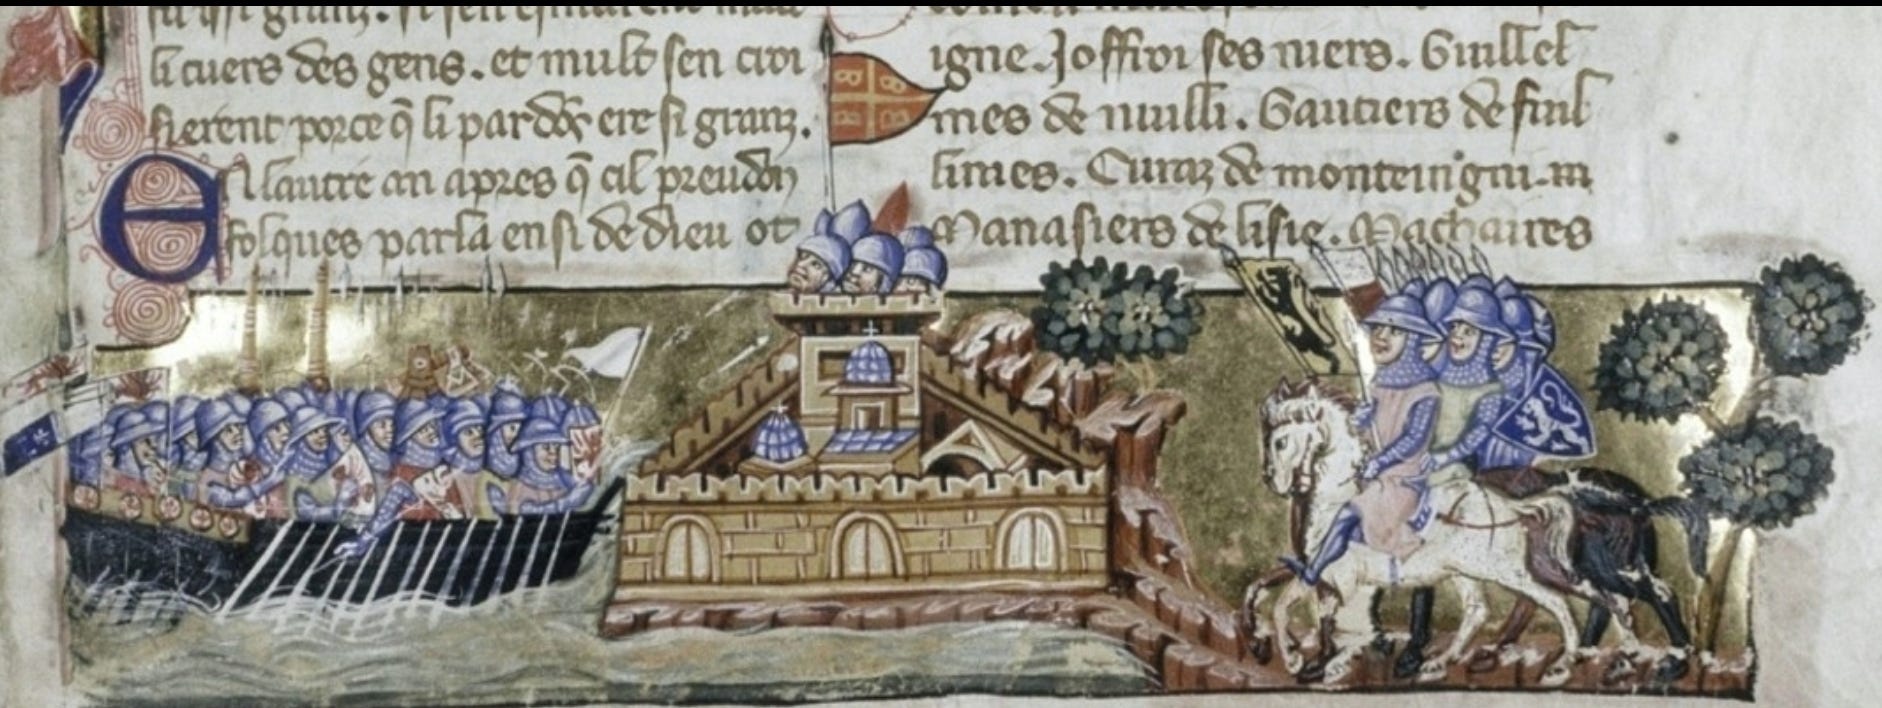 li cuers des gens. et mult sen croi
sierent porce q̃ li pardõs ere si granz.
En lautre an apres q̃ cil preudõ
folques parla ensi de dieu ot
igne. Joffroi ses niers. Guillel
mes de nuilli. Gautiers de fuil
limes. Curaz de monteingni.
Manasiers de lisle. Machaires